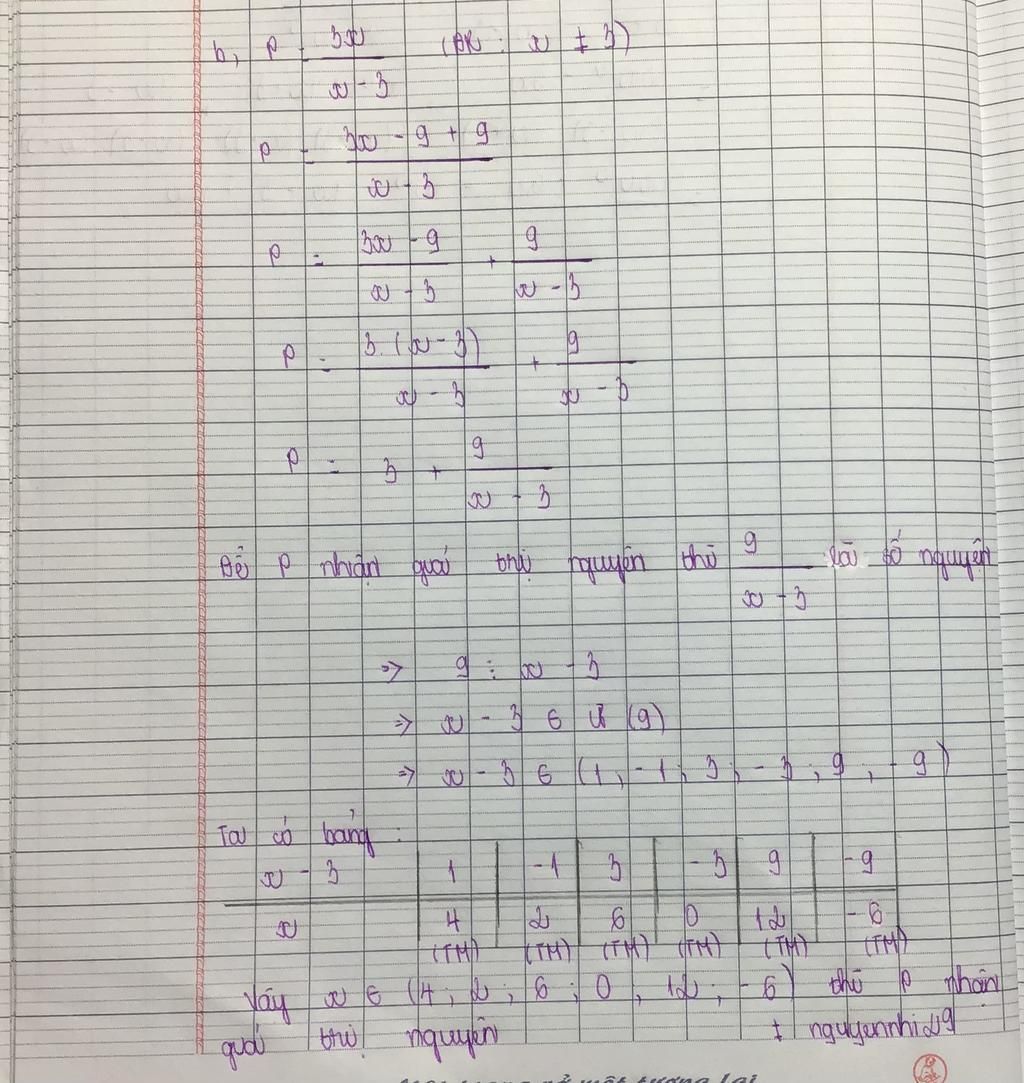 b, P = 3x / x - 3 (ĐK : x ≠ 3)
P = 3x - 9 + 9 / x - 3
P = 3x - 9 / x - 3 + 9 / x - 3
P = 3. (x - 3) / x - 3 + 9 / x - 3
P = 3 + 9 / x - 3
Để P nhận giá trị nguyên thì 9 / x - 3 là số nguyên
=> 9 ⋮ x - 3
=> x - 3 ∈ Ư (9)
=> x - 3 ∈ (1 ; -1 ; 3 ; -3 ; 9 ; -9)
Ta có bảng :
x - 3 | 1 | -1 | 3 | -3 | 9 | -9
x 4 2 6 0 12 -6
(TM) (TM) (TM) (TM) (TM) (TM)
Vậy x ∈ (4 ; 2 ; 6 ; 0 ; 12 ; -6) thì P nhận
giá trị nguyên + nguyennhi249